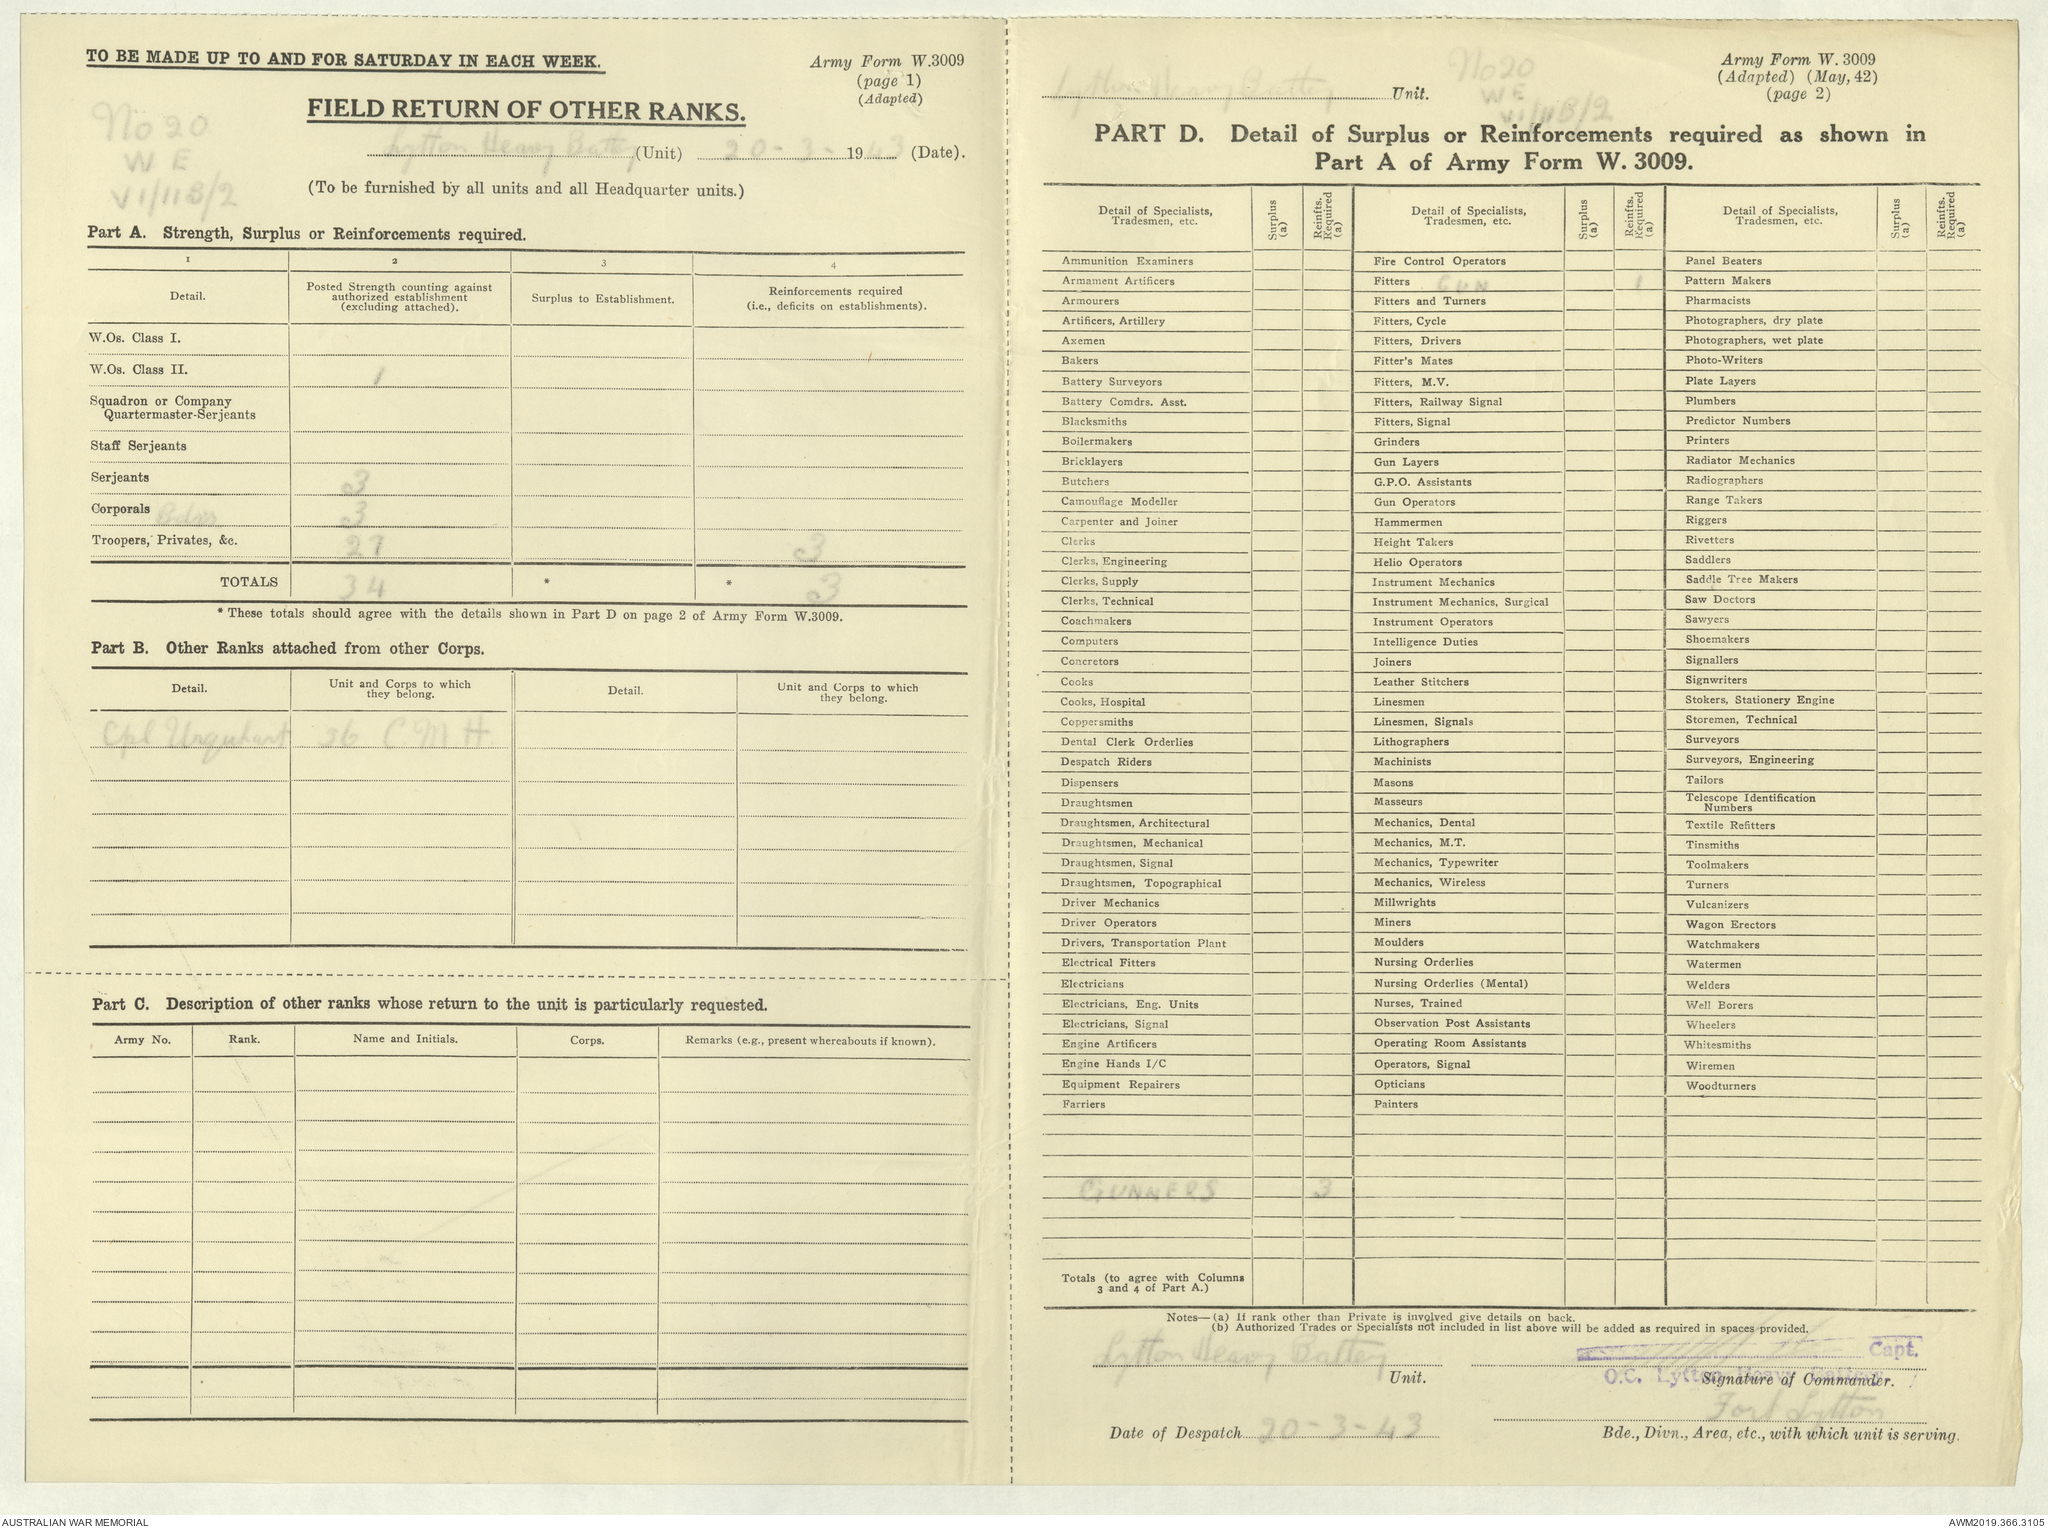 TO BE MADE UP TO AND FOR SATURDAY IN EACH WEEK.
Army Form W.3009
(page 1)
(Adapted)
No 20
W E
VI/11B/2
FIELD RETURN OF OTHER RANKS.
Lytton Heavy Battery (Unit) 20-3-1943 (Date).
(To be furnished by all units and all Headquarter units.)
Part A. Strength, Surplus or Reinforcements required.
1 2 3 4
Detail.
Posted Strength counting against
authorized establishment
(excluding attached).
Surplus to Establishment.
Reinforcements required
(i.e., deficits on establishments).
W.Os. Class I.
W.Os. Class II. 1
Squadron or Company
Quartermaster-Serjeants
Staff Serjeants
Serjeants 3
Corporals Bdrs 3
Troopers, Privates, &c. 27 3
TOTALS 34 * * 3
* These totals should agree with the details shown in Part D on page 2 of Army Form W.3009.
Part B. Other Ranks attached from other Corps.
Detail.
Unit and Corps to which
they belong.
Detail.
Unit and Corps to which
they belong.
Cpl Urquhart 56 C M H.
Part C. Description of other ranks whose return to the unit is particularly requested.
Army No. Rank. Name and Initials. Corps. Remarks (e.g., present whereabouts if known).
Lytton Heavy Battery Unit.
No 20
W E
VI/11B/2
Army Form W. 3009
(Adapted) (May, 42)
(page 2)
PART D. Detail of Surplus or Reinforcements required as shown in
Part A of Army Form W. 3009.
Detail of Specialists,
Tradesmen, etc.
Surplus
(a)
Reinfts.
Required
(a)
Ammunition Examiners
Armament Artificers
Armourers
Artificers, Artillery
Axemen
Bakers
Battery Surveyors
Battery Comdrs. Asst.
Blacksmiths
Boilermakers
Bricklayers
Butchers
Camouflage Modeller
Carpenter and Joiner
Clerks
Clerks, Engineering
Clerks, Supply
Clerks, Technical
Coachmakers
Computers
Concretors
Cooks
Cooks, Hospital
Coppersmiths
Dental Clerk Orderlies
Despatch Riders
Dispensers
Draughtsmen
Draughtsmen, Architectural
Draughtsmen, Mechanical
Draughtsmen, Signal
Draughtsmen, Topographical
Driver Mechanics
Driver Operators
Drivers, Transportation Plant
Electrical Fitters
Electricians
Electricians, Eng. Units
Electricians, Signal
Engine Artificers
Engine Hands I/C
Equipment Repairers
Farriers
GUNNERS 3
Totals (to agree with Columns
3 and 4 of Part A.)
Detail of Specialists,
Tradesmen, etc.
Surplus
(a)
Reinfts.
Required
(a)
Fire Control Operators
Fitters GUN 1
Fitters and Turners
Fitters, Cycle
Fitters, Drivers
Fitter's Mates
Fitters, M.V.
Fitters, Railway Signal
Fitters, Signal
Grinders
Gun Layers
G.P.O. Assistants
Gun Operators
Hammermen
Height Takers
Helio Operators
Instrument Mechanics
Instrument Mechanics, Surgical
Instrument Operators
Intelligence Duties
Joiners
Leather Stitchers
Linesmen
Linesmen, Signals
Lithographers
Machinists
Masons
Masseurs
Mechanics, Dental
Mechanics, M.T.
Mechanics, Typewriter
Mechanics, Wireless
Millwrights
Miners
Moulders
Nursing Orderlies
Nursing Orderlies (Mental)
Nurses, Trained
Observation Post Assistants
Operating Room Assistants
Operators, Signal
Opticians
Painters
Detail of Specialists,
Tradesmen, etc.
Surplus
(a)
Reinfts.
Required
(a)
Panel Beaters
Pattern Makers
Pharmacists
Photographers, dry plate
Photographers, wet plate
Photo-Writers
Plate Layers
Plumbers
Predictor Numbers
Printers
Radiator Mechanics
Radiographers
Range Takers
Riggers
Rivetters
Saddlers
Saddle Tree Makers
Saw Doctors
Sawyers
Shoemakers
Signallers
Signwriters
Stokers, Stationery Engine
Storemen, Technical
Surveyors
Surveyors, Engineering
Tailors
Telescope Identification
Numbers
Textile Refitters
Tinsmiths
Toolmakers
Turners
Vulcanizers
Wagon Erectors
Watchmakers
Watermen
Welders
Well Borers
Wheelers
Whitesmiths
Wiremen
Woodturners
Notes—(a) If rank other than Private is involved give details on back.
(b) Authorized Trades or Specialists not included in list above will be added as required in spaces provided.
Lytton Heavy Battery Unit.
Capt.
O.C. Lytton Heavy Battery
Signature of Commander.
Fort Lytton
Date of Despatch 20-3-43
Bde., Divn., Area, etc., with which unit is serving.
AUSTRALIAN WAR MEMORIAL
AWM2019.366.3105